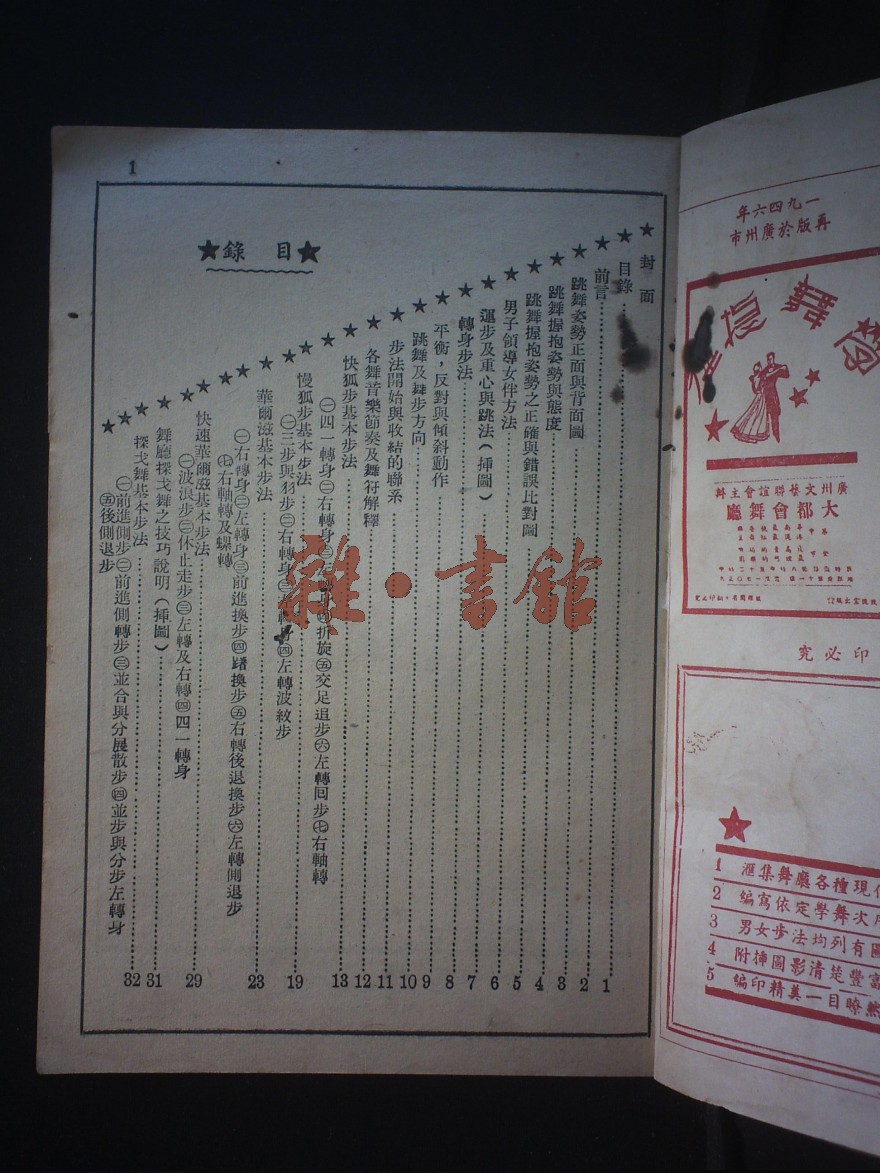 1
★錄 目★
★封面
★目錄
★前言 1
★跳舞姿勢正面與背面圖 2
★跳舞握抱姿勢與態度 3
★跳舞握抱姿勢之正確與錯誤比對圖 4
★男子領導女伴方法 5
★運步及重心與跳法(揷圖) 6
★轉身步法 7
★平衡,反對與傾斜動作 8
★跳舞及舞步方向 9
★步法開始與收結的聯系 10
★各舞音樂節奏及舞符解釋 11
★快狐步基本步法 13
㊀四一轉身㊁右轉身㊂折旋㊄交足追步㊅左轉囘步㊆右軸轉
★慢狐步基本步法 19
㊀三步與羽步㊁右轉身㊃左轉波紋步
★華爾滋基本步法 23
㊀右轉身㊁左轉身㊂前進換步㊃躊換步㊄右轉後退換步㊅左轉側退步
㊆右軸轉及螺轉
★快速華爾滋基本步法 29
㊀波浪步㊁休止走步㊂左轉及右轉㊃四一轉身
★舞廳探戈舞之技巧說明(揷圖) 31
★探戈舞基本步法 32
㊀前進側步㊁前進側轉步㊂並合與分展散步㊃並步與分步左轉身
㊄後側退步
年六四九一
市州廣於版再
舞
辦主會誼聯藝文州廣
廳舞會都大
究必印
1 滙集舞廳各種現
2 編寫依定學舞次
3 男女步法均列有圖
4 附揷圖影清楚豐富
5 編印精美一目瞭然
雜·書館